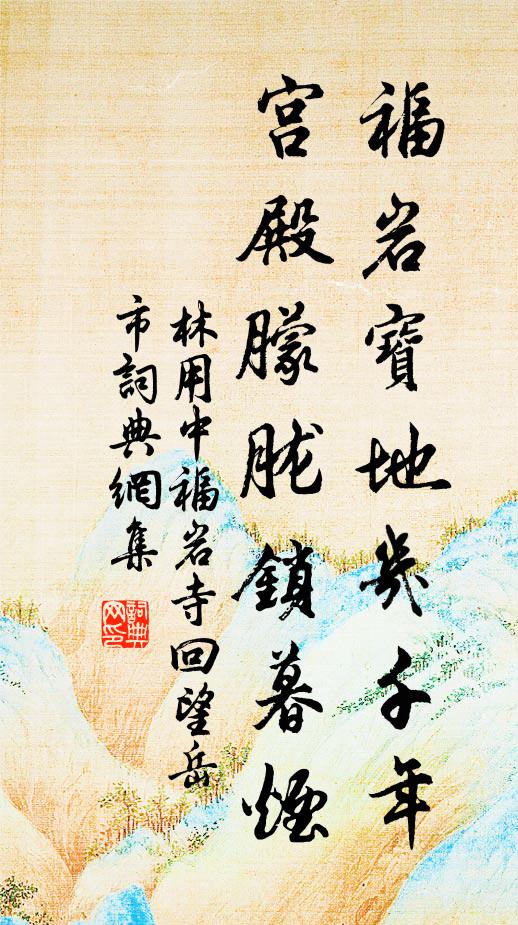 福岩寶地幾千年
宮殿朦朧鎖暮煙
林用中福岩寺回望岳
市詞典網集
詞典
网印